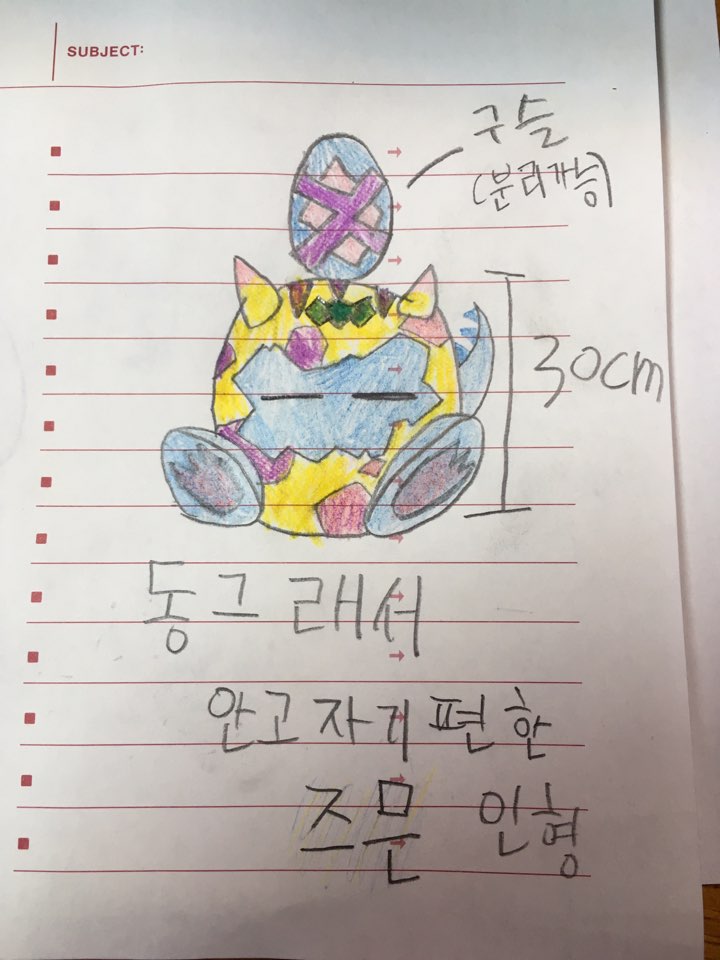 SUBJECT:
구슬
(분리가능)
30cm
동그래서
안고자기편한
즈믄 인형